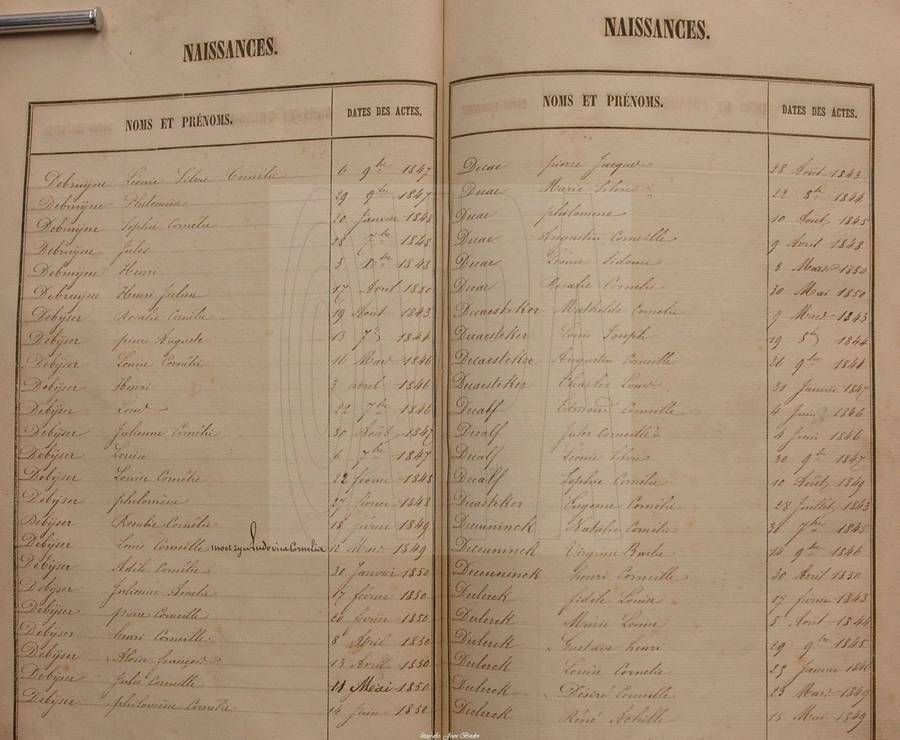 NAISSANCES.
NOMS ET PRÉNOMS. DATES DES ACTES.
Debruÿne Léonie Silvie Cornélie 6 9bre 1847
Debruÿne 29 9bre 1847
Debruÿne Sophie Cornélie 20 Janvier 1848
Debruÿne Jules 28 7bre 1848
Debruÿne Henri 3 Xbre 1848
Debruÿne Henri Julien 17 Avril 1850
Debÿser Rosalie Cornélie 19 Août 1843
Debÿser pierre Auguste 13 7bre 1844
Debÿser Louise Cornélie 16 Mars 1846
Debÿser Henri 3 avril 1846
Debÿser Louis 22 7bre 1846
Debÿser Julienne Cornélie 30 Août 1847
Debÿser Louise 6 7bre 1847
Debÿser Louise Cornélie 22 février 1848
Debÿser philomène 27 février 1848
Debÿser Rosalie Cornélie 18 février 1849
Debÿser Louis Corneille Ludovica Cornelia 12 Mars 1849
Debÿser Adèle Cornélie 30 Janvier 1850
Debÿser Julienne Amelie 17 février 1850
Debÿser pierre Corneille 20 février 1850
Debÿser henri Corneille 8 Avril 1850
Debÿser Aloise françois 13 Avril 1850
Debÿser Jules Corneille 11 Mai 1850
Debÿser philomène Cornélie 14 Juin 1850
NAISSANCES.
NOMS ET PRÉNOMS. DATES DES ACTES.
Decae pierre Jacques 28 Août 1843
Decae Marie Silvie 22 8bre 1844
Decae philomène 10 Août 1845
Decae Augustin Corneille 9 Avril 1848
Decae Léonie Sidonie 3 Mars 1850
Decae Rosalie Cornélie 30 Mai 1850
Decaesteker Mathilde Cornelie 9 Mars 1843
Decaesteker Louis Joseph 19 8bre 1844
Decaesteker Augustin Corneille 21 9bre 1844
Decaesteker Charles Louis 31 Janvier 1847
Decalf Edmond Corneille 4 Juin 1846
Decalf Jules Corneille 4 Juin 1846
Decalf Léonie Silvie 30 9bre 1847
Decalf Sophie Cornélie 10 Août 1849
Decasteker Eugenie Cornélie 28 Juillet 1843
Deceuninck Natalie Cornélie 31 7bre 1845
Deceuninck Virginie Barbe 14 9bre 1846
Deceuninck henri Corneille 30 Avril 1850
Declerck fidèle Louis 17 février 1843
Declerck Marie Louise 5 Août 1844
Declerck Gustave henri 29 9bre 1845
Declerck Louise Cornelie 23 Janvier 1846
Declerck Désiré Corneille 23 Mars 1849
Declerck Réné Achille 15 Mai 1849